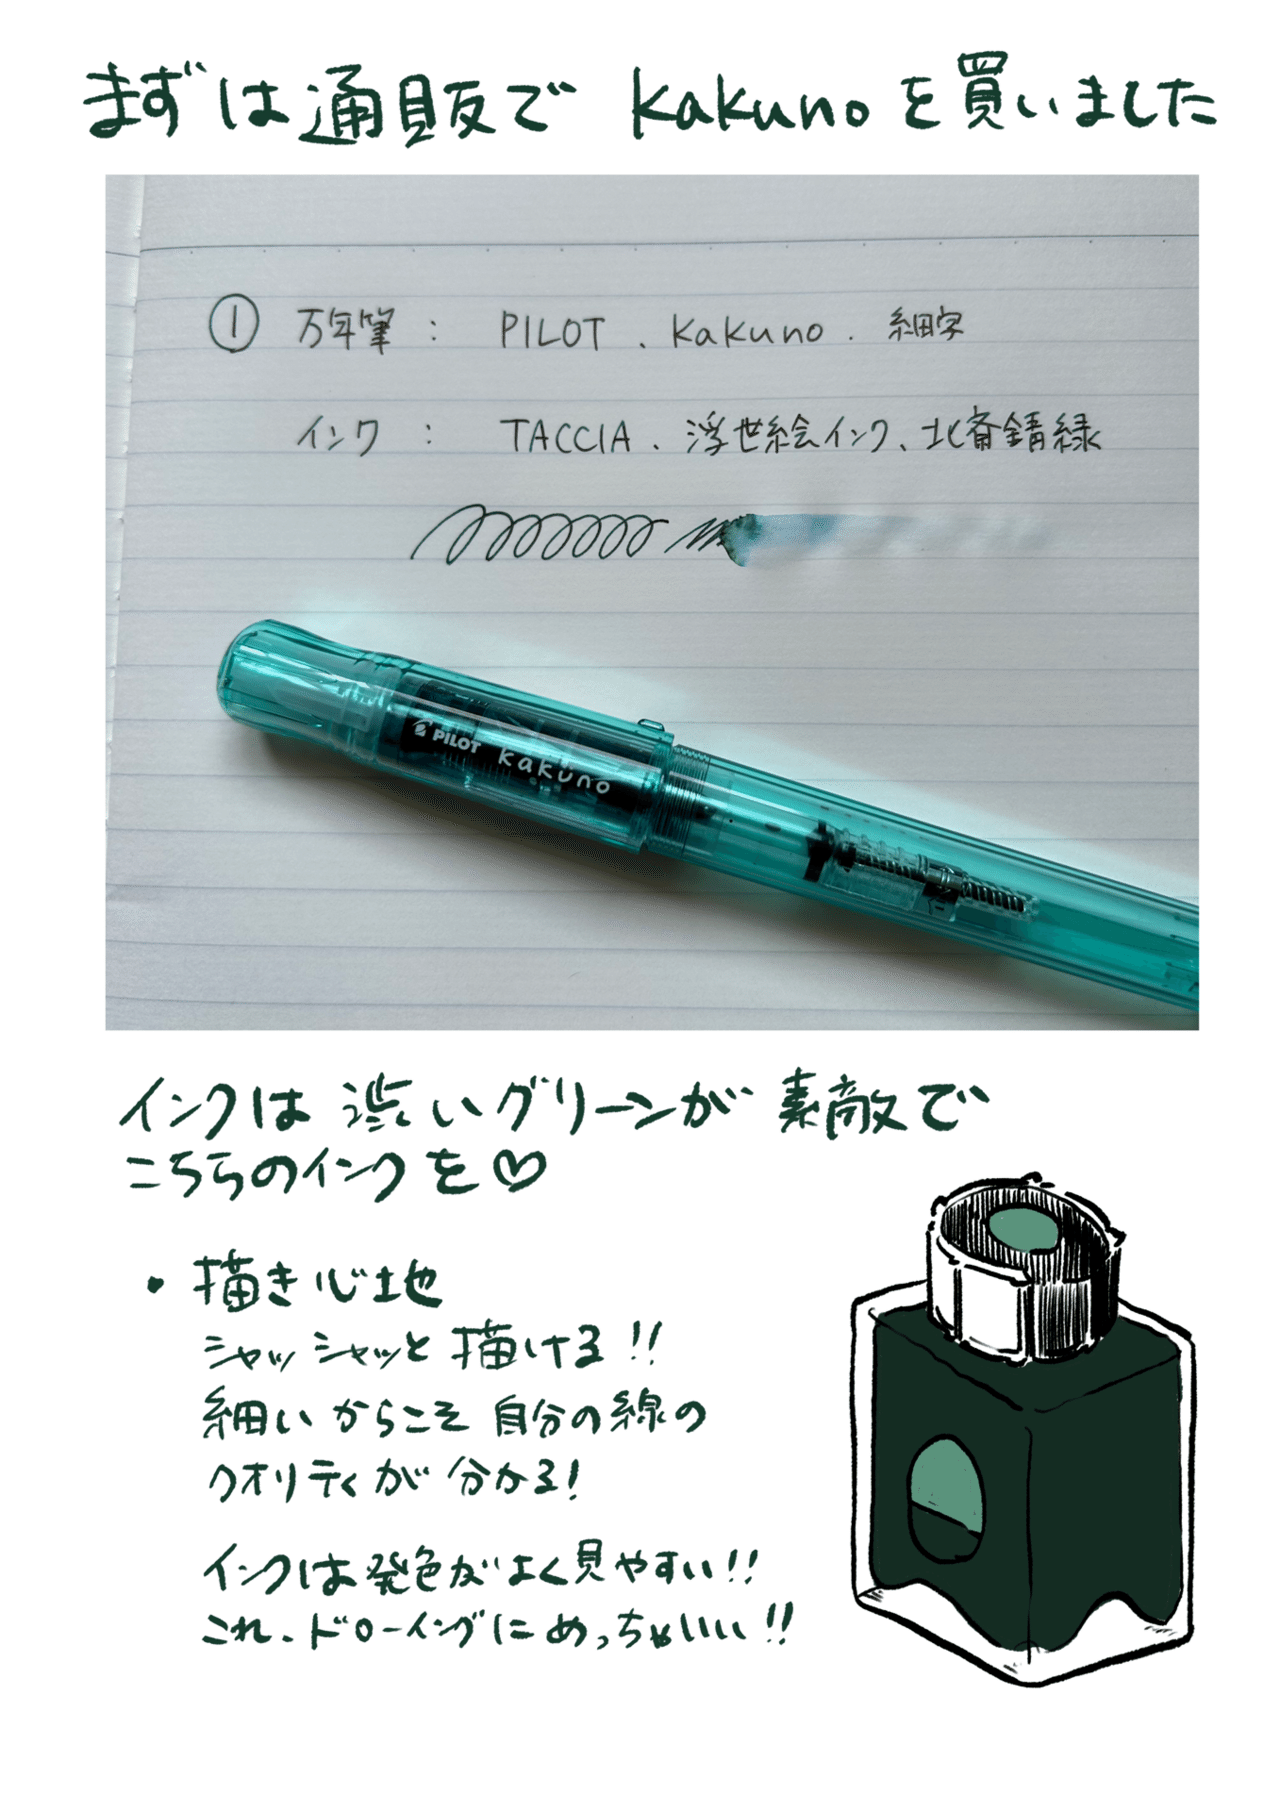 まずは通販で kakunoを買いました
① 万年筆 : PILOT、kakuno、細字
インク : TACCIA、浮世絵インク、北斎錆緑
PILOT kakuno
インクは渋いグリーンが素敵で
こちらのインクを♡
・描き心地
シャッシャッと描ける!!
細いからこそ自分の線の
クオリティが分かる!
インクは発色がよく見やすい!!
これ、ドローイングにめっちゃいい!!